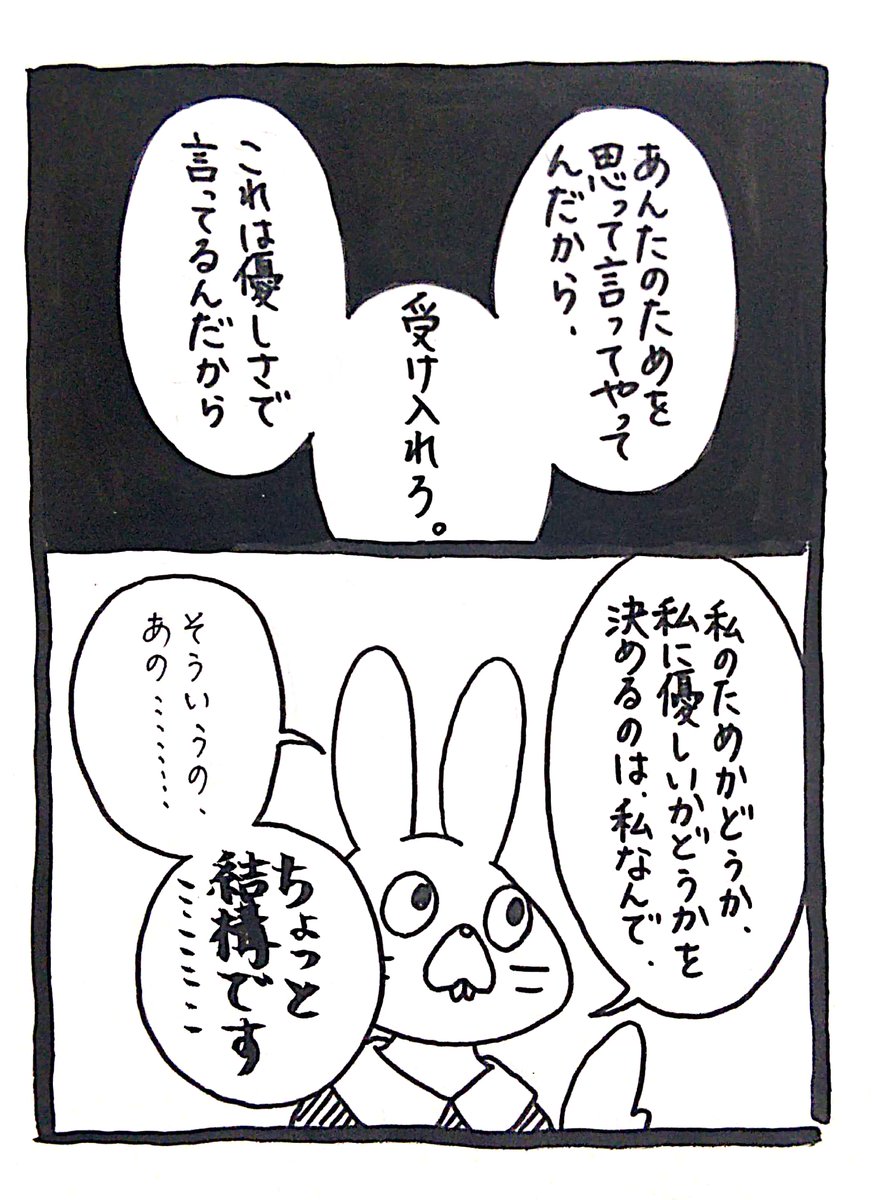 あんたのためを
思って言ってやって
んだから、
受け入れろ。
これは優しさで
言ってるんだから
私のためかどうか、
私に優しいかどうかを
決めるのは、私なんで、
そういうの、
あの………
ちょっと
結構です
…………